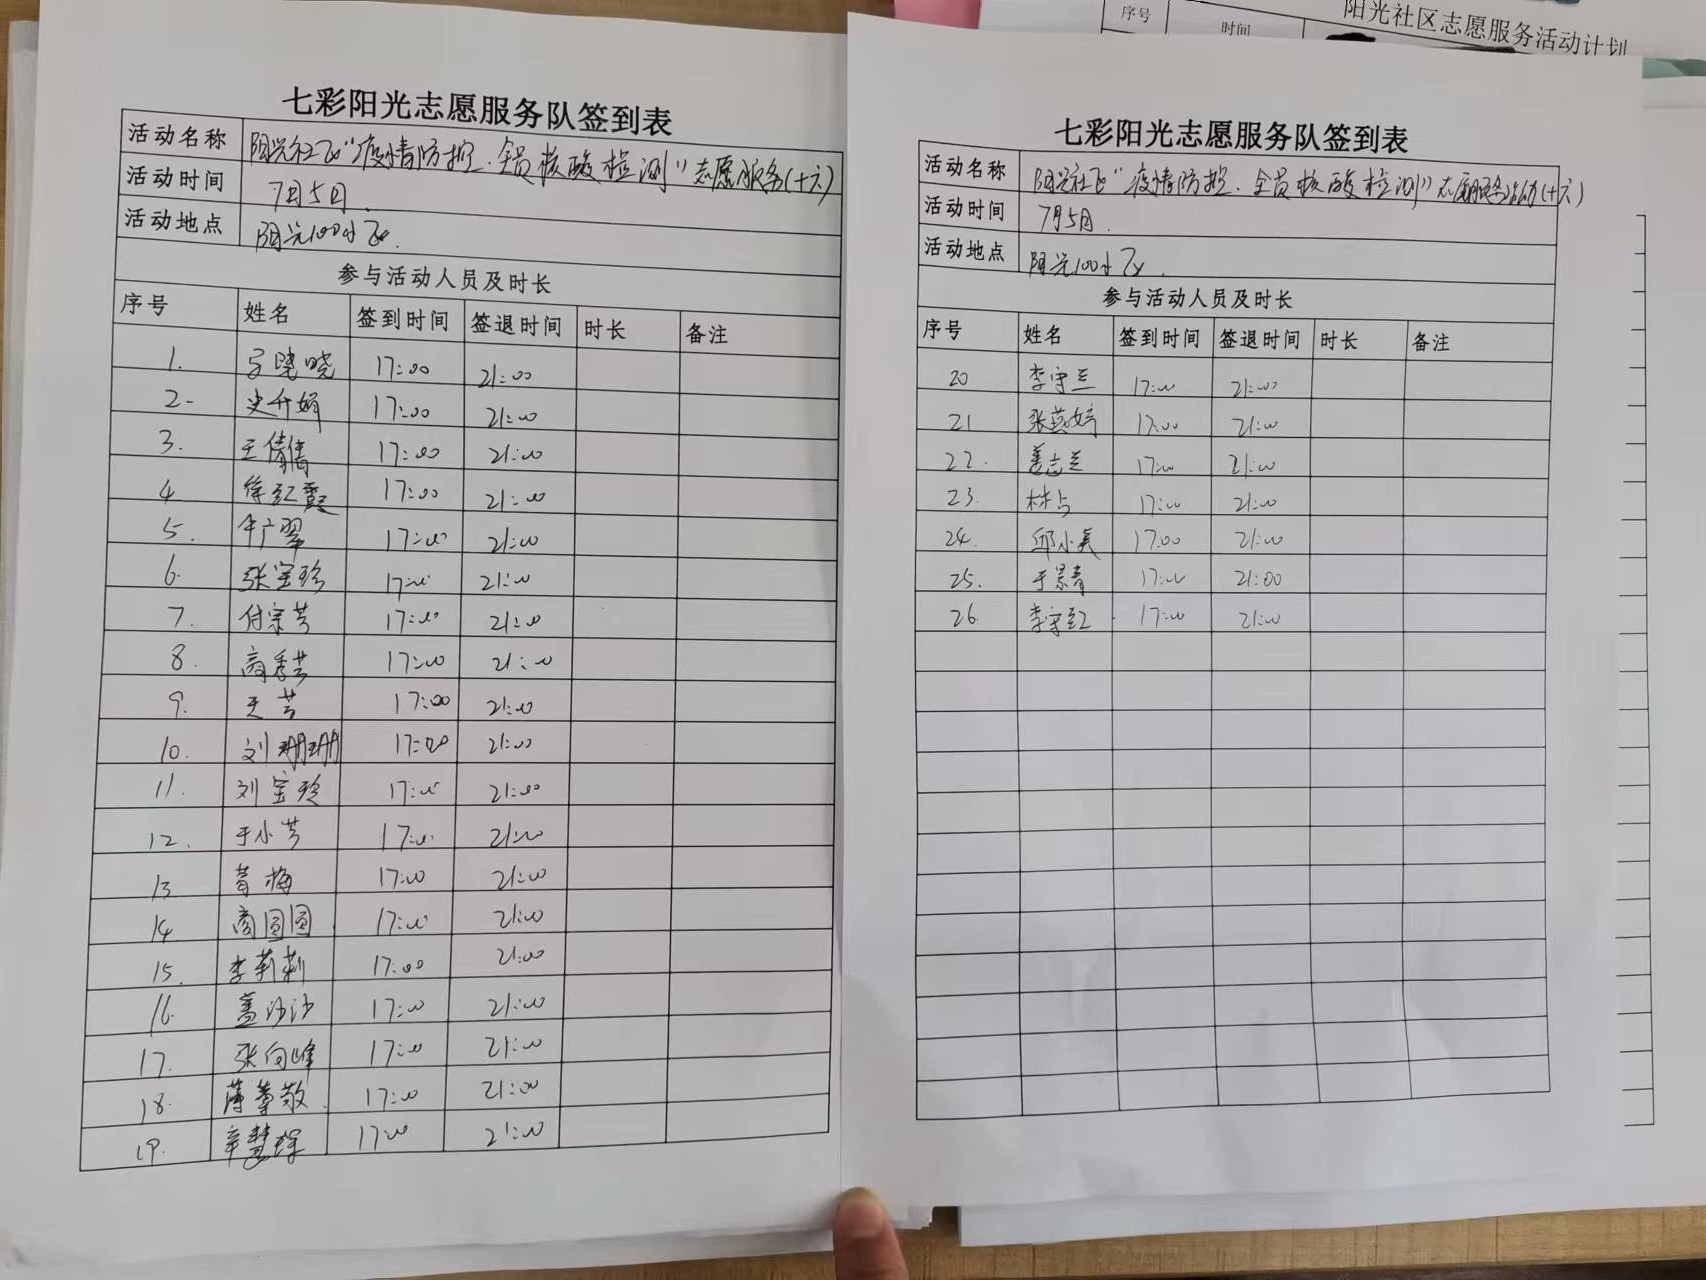 七彩阳光志愿服务队签到表
活动名称 阳光社区“疫情防控、全员核酸检测”志愿服务(十六)
活动时间 7月5日.
活动地点 阳光100小区.
参与活动人员及时长
序号 姓名 签到时间 签退时间 时长 备注
1. 晓晓 17:00 21:00
2- 史升娟 17:00 21:00
3. 王倩倩 17:00 21:00
4 徐红霞 17:00 21:00
5. 牛广翠 17:00 21:00
6. 张宝珍 17:00 21:00
7. 付宗芳 17:00 21:00
8. 商秀芸 17:00 21:00
9. 王芳 17:00 21:00
10. 刘珊珊 17:00 21:00
11. 刘宝玲 17:00 21:00
12. 于小芳 17:00 21:00
13 黄梅 17:00 21:00
14. 商圆圆 17:00 21:00
15. 李莉莉 17:00 21:00
16. 盖沙沙 17:00 21:00
17. 张向峰 17:00 21:00
18. 薄尊敬. 17:00 21:00
19. 辛慧 17:00 21:00
七彩阳光志愿服务队签到表
活动名称 阳光社区“疫情防控、全员核酸检测”志愿服务活动(十六)
活动时间 7月5日.
活动地点 阳光100小区.
参与活动人员及时长
序号 姓名 签到时间 签退时间 时长 备注
20 李守兰 17:00 21:00
21 张燕婷 17:00 21:00
22. 姜志兰 17:00 21:00
23. 林占 17:00 21:00
24. 邱小美 17:00 21:00
25. 于景青 17:00 21:00
26. 李守红 17:00 21:00
阳光社区志愿服务活动计划
序号 时间